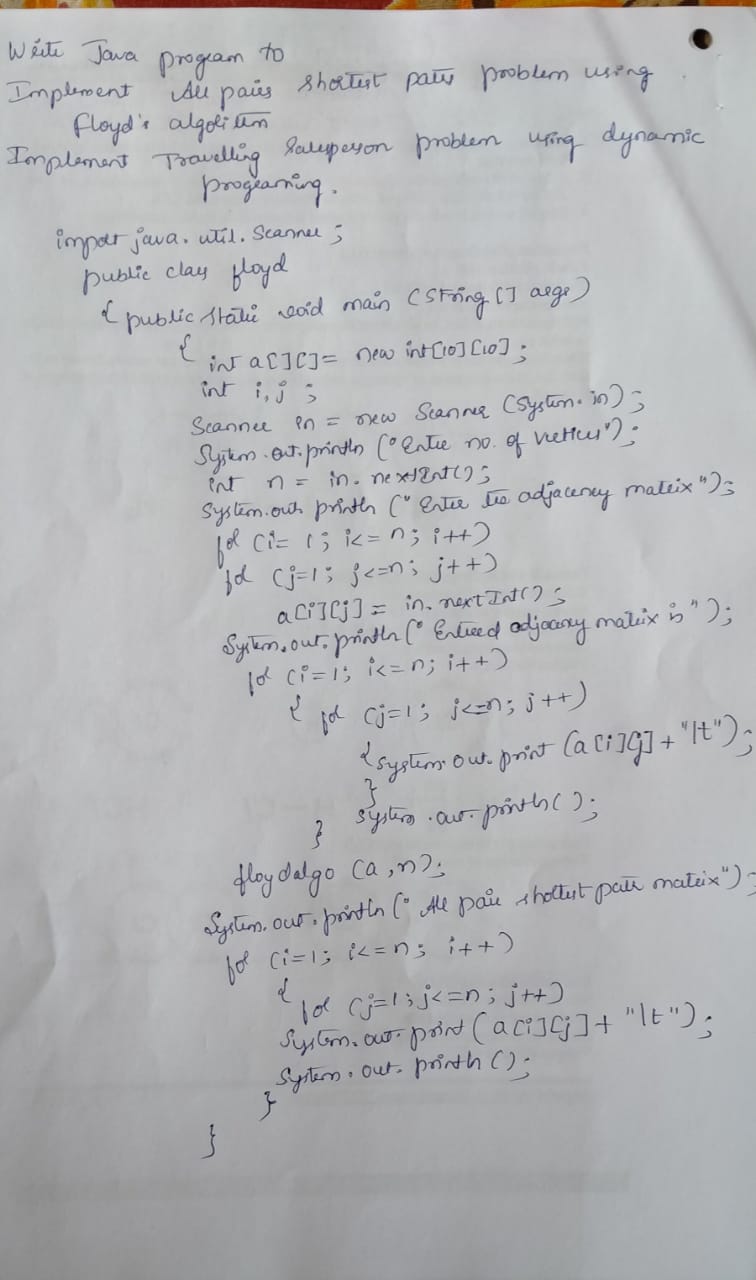 Write Java program to
Implement All pairs shortest path problem using
Floyd's algorithm
Implement Travelling Salesperson problem using dynamic
programing.
import java. util. Scanner ;
public class floyd
{ public static void main (String [] args)
{ int a[][]= new int[10][10] ;
int i, j ;
Scanner in = new Scanner (System. in) ;
System.out.println ("Enter no. of vertices");
int n = in. nextInt() ;
System.out. println (" Enter the adjacency matrix");
for (i= 1 ; i<= n ; i++)
for (j=1; j<=n; j++)
a[i][j] = in. nextInt() ;
System.out. println (" Entered adjacency matrix is");
for (i=1; i<=n; i++)
{ for (j=1 ; j<=n; j++)
{ system. out. print (a[i][j] + "\t");
}
} System . out. println( );
floydalgo (a ,n);
System. out. println (" All pair shortest path matrix") ;
for (i=1; i<=n ; i++)
{
for (j=1; j<=n ; j++)
System. out. print ( a[i][j] + "\t") ;
System. out. println ();
}
}